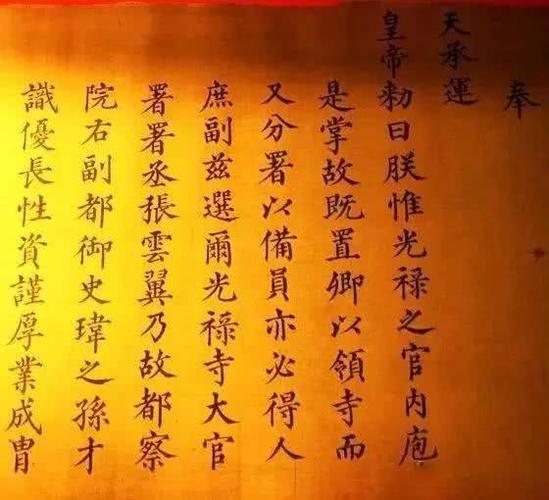 奉
天承運
皇帝勑曰朕惟光祿之官内庖
是掌故既置卿以領寺而
又分署以備員亦必得人
庶副兹選爾光祿寺大官
署署丞張雲翼乃故都察
院右副都御史瑋之孫才
識優長性資謹厚業成胄